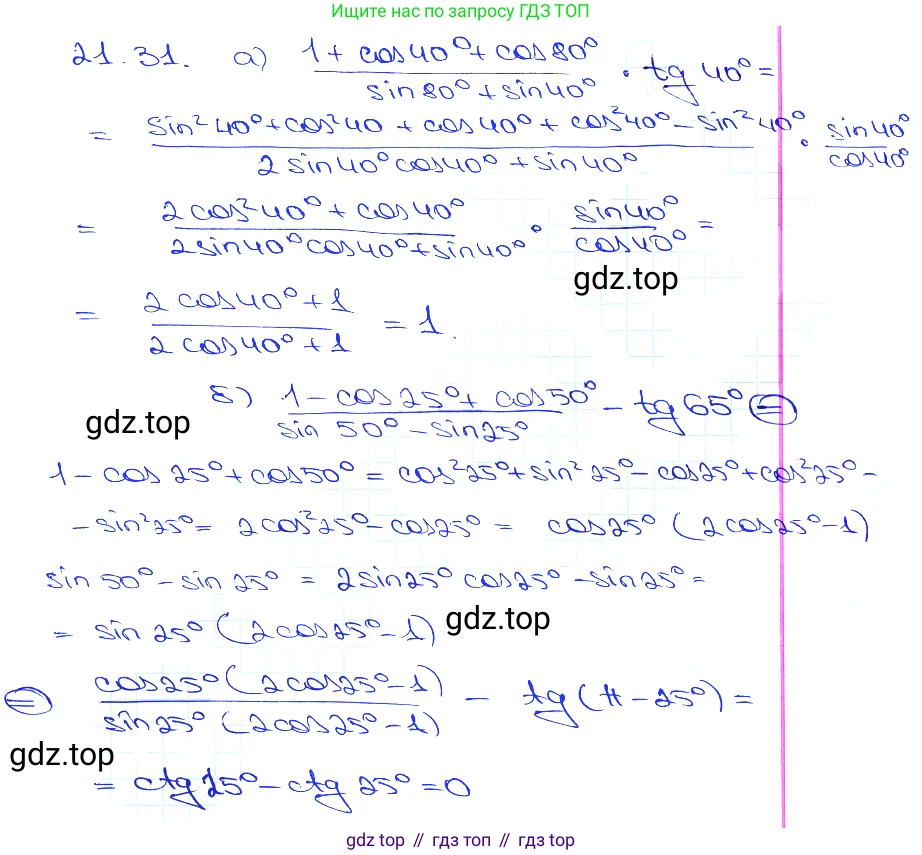 Ищите нас по запросу ГДЗ ТОП
21.31. а) (1 + cos40° + cos80°)/(sin80° + sin40°) · tg 40° =
= (sin²40° + cos²40 + cos40° + cos²40° - sin²40°)/(2 sin40° cos40° + sin40°) · sin40°/cos40°
= (2cos²40° + cos40°)/(2sin40° cos40° + sin40°) · sin40°/cos40° =
gdz.top
= (2 cos40° + 1)/(2 cos40° + 1) = 1.
б) (1 - cos25° + cos50°)/(sin 50° - sin25°) - tg 65° =
gdz.top
1 - cos25° + cos50° = cos²25° + sin²25° - cos25° + cos²25° -
- sin²25° = 2cos²25° - cos25° = cos25° (2cos25° - 1)
sin 50° - sin 25° = 2sin25° cos25° - sin25° =
= sin 25° (2cos25° - 1)
gdz.top
= cos25° (2cos25° - 1)/(sin25° (2cos25° - 1)) - tg(π - 25°) =
gdz.top
= ctg 25° - ctg 25° = 0
gdz.top // гдз топ // гдз top